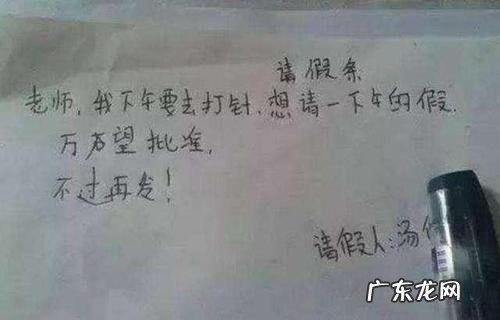 请假条
老师，我下午要去打针，想请一下午的假。
万君望批准，
不过再发！
请假人：汤
广东龙网